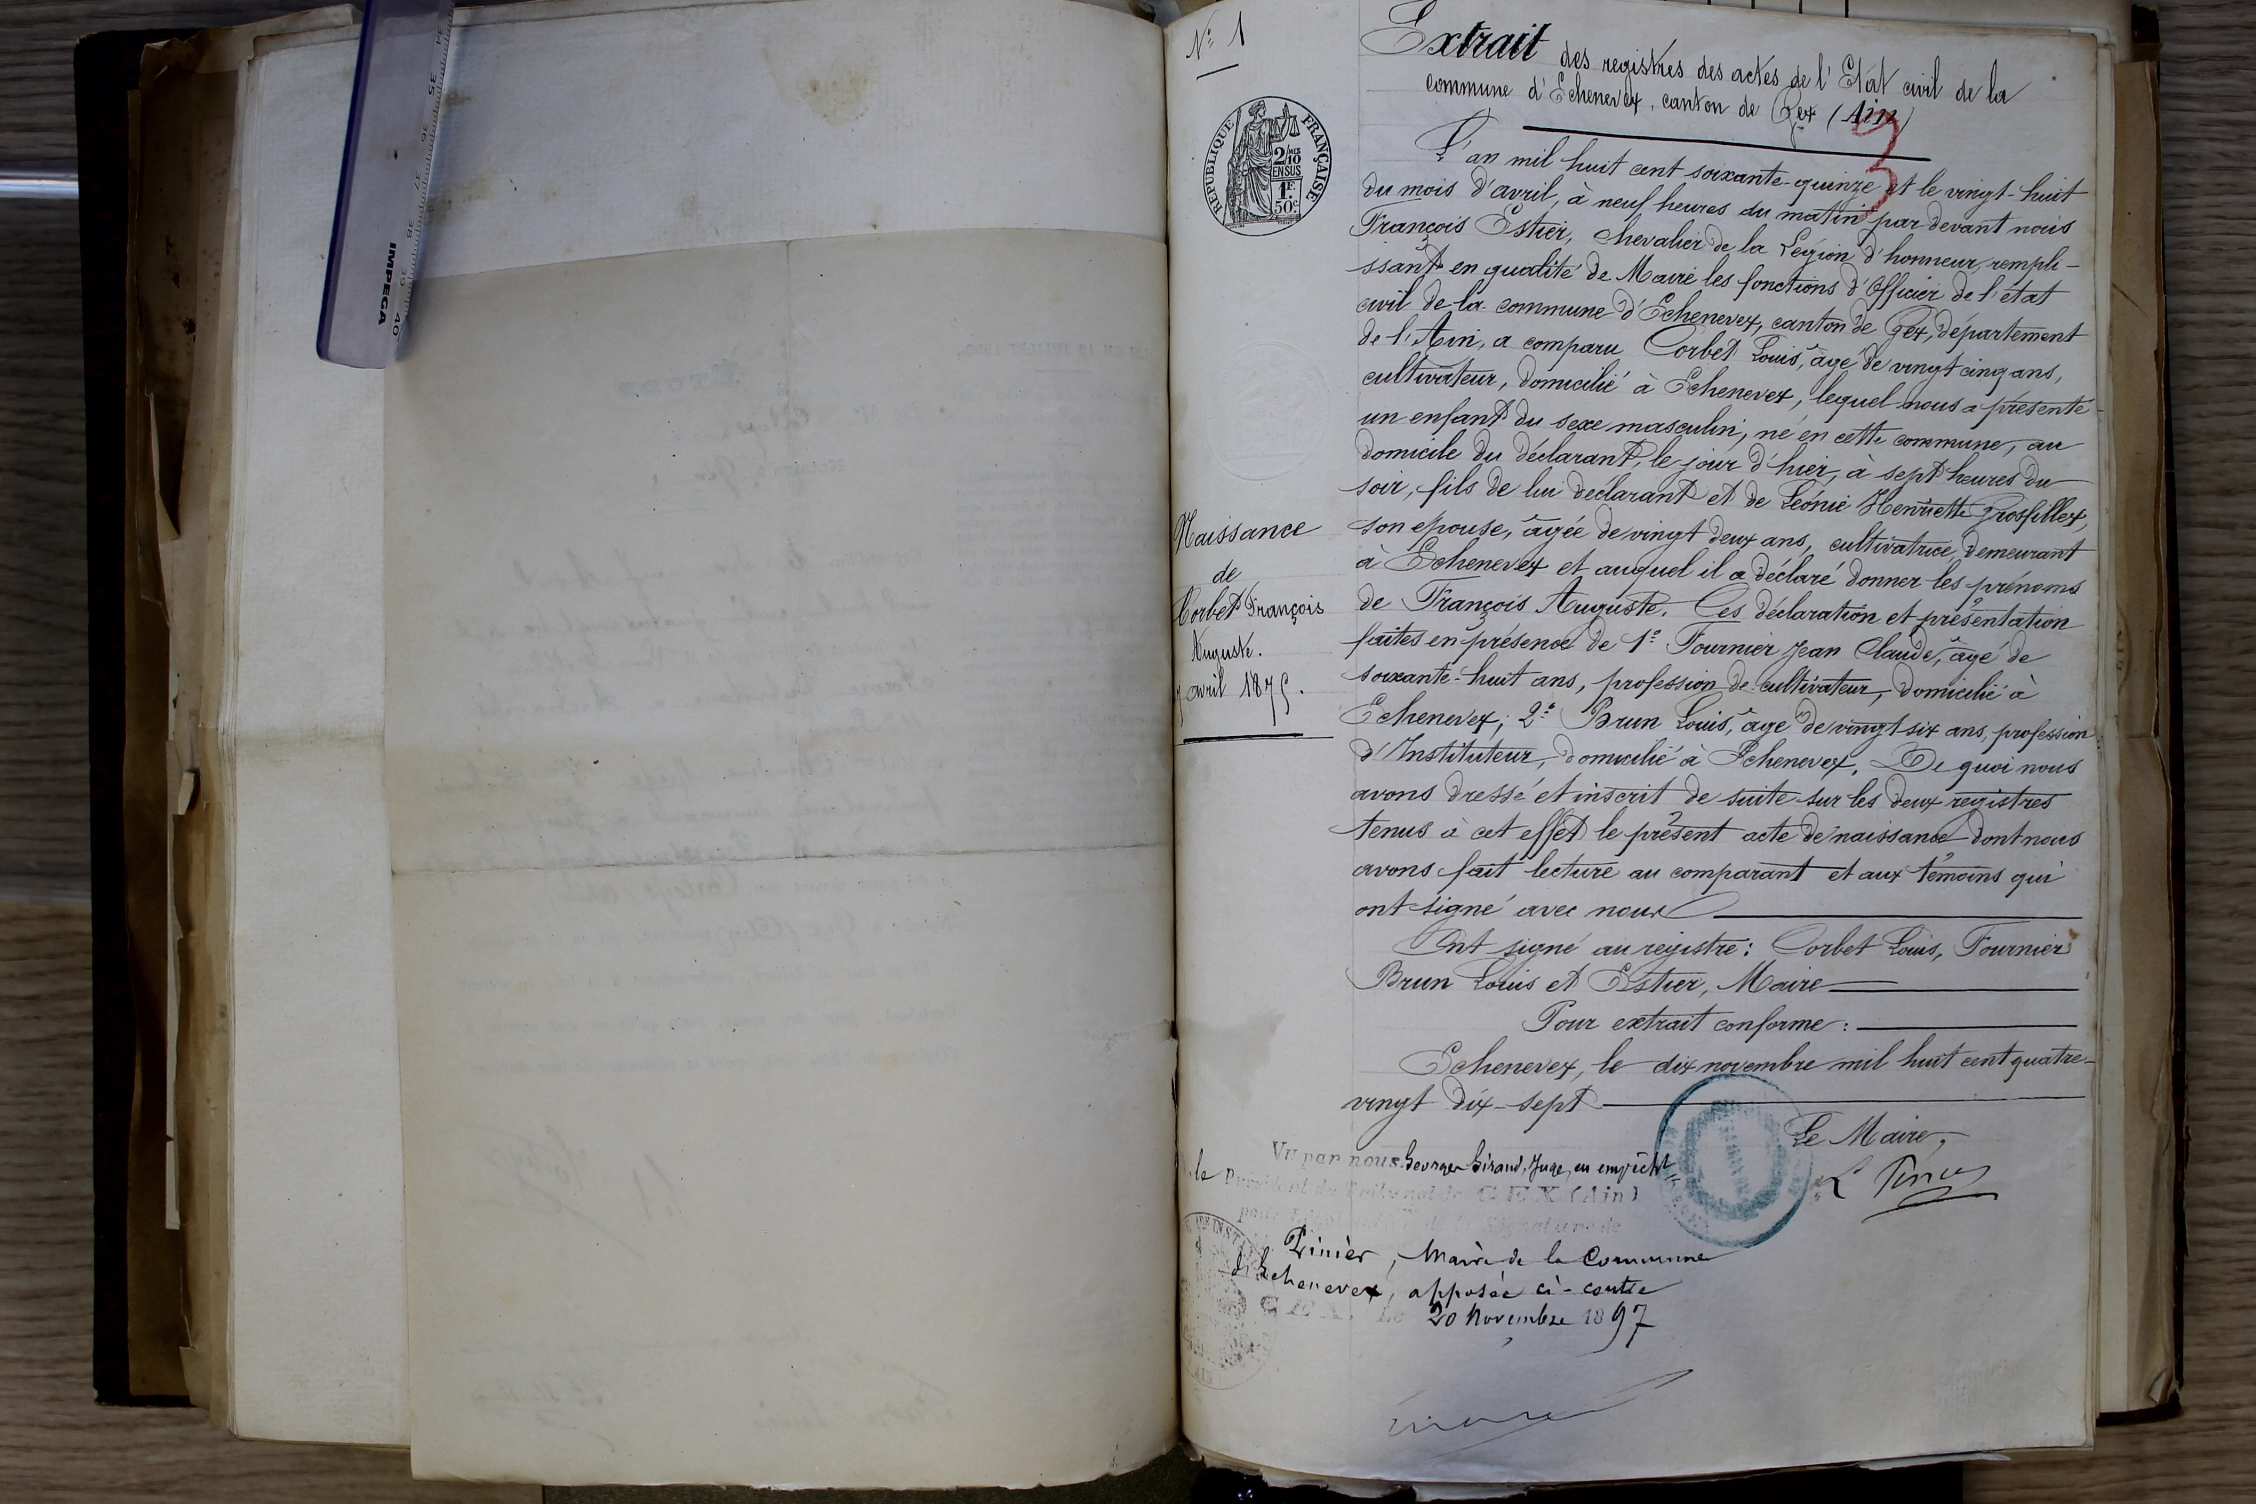 IMPEGA
34 35 36 37 38 39 40
Nº 1
Extrait des registres des actes de l'Etat civil de la
commune d'Echenevex, canton de Gex (Ain)
3
RÉPUBLIQUE FRANÇAISE
2/10
EN SUS
1F.
50c
L'an mil huit cent soixante-quinze et le vingt-huit
du mois d'avril, à neuf heures du matin par devant nous
François Estier, chevalier de la Légion d'honneur, rempli-
ssant en qualité de Maire les fonctions d'Officier de l'état
civil de la commune d'Echenevex, canton de Gex, département
de l'Ain, a comparu Corbet Louis, âgé de vingt cinq ans,
cultivateur, domicilié à Echenevex, lequel nous a présenté
un enfant du sexe masculin, né en cette commune, au
domicile du déclarant, le jour d'hier, à sept heures du
soir, fils de lui déclarant et de Léonie Henriette Grosfillex,
son epouse, âgée de vingt deux ans, cultivatrice, demeurant
à Echenevex et auquel il a déclaré donner les prénoms
de François Auguste. Ces déclaration et présentation
faites en présence de 1º Fournier Jean Claude, âgé de
soixante-huit ans, profession de cultivateur, domicilié à
Echenevex; 2º Brun Louis, âgé de vingt six ans, profession
d'Instituteur, domicilié à Echenevex. De quoi nous
avons dressé et inscrit de suite sur les deux registres
tenus à cet effet le présent acte de naissance dont nous
avons fait lecture au comparant et aux témoins qui
ont signé avec nous
Ont signé au registre: Corbet Louis, Fournier
Brun Louis et Estier, Maire
Pour extrait conforme:
Echenevex, le dix novembre mil huit cent quatre-
vingt dix-sept
Le Maire,
Naissance
de
Corbet François
Auguste.
avril 1875.
Vu par nous Georges Giraud, Juge, en empêcht
le Président du Tribunal de GEX (Ain)
pour légalisation de la signature de
Pinier, Maire de la Commune
d'Echenevex, apposée ci-contre
GEX, Le 20 Novembre 1897